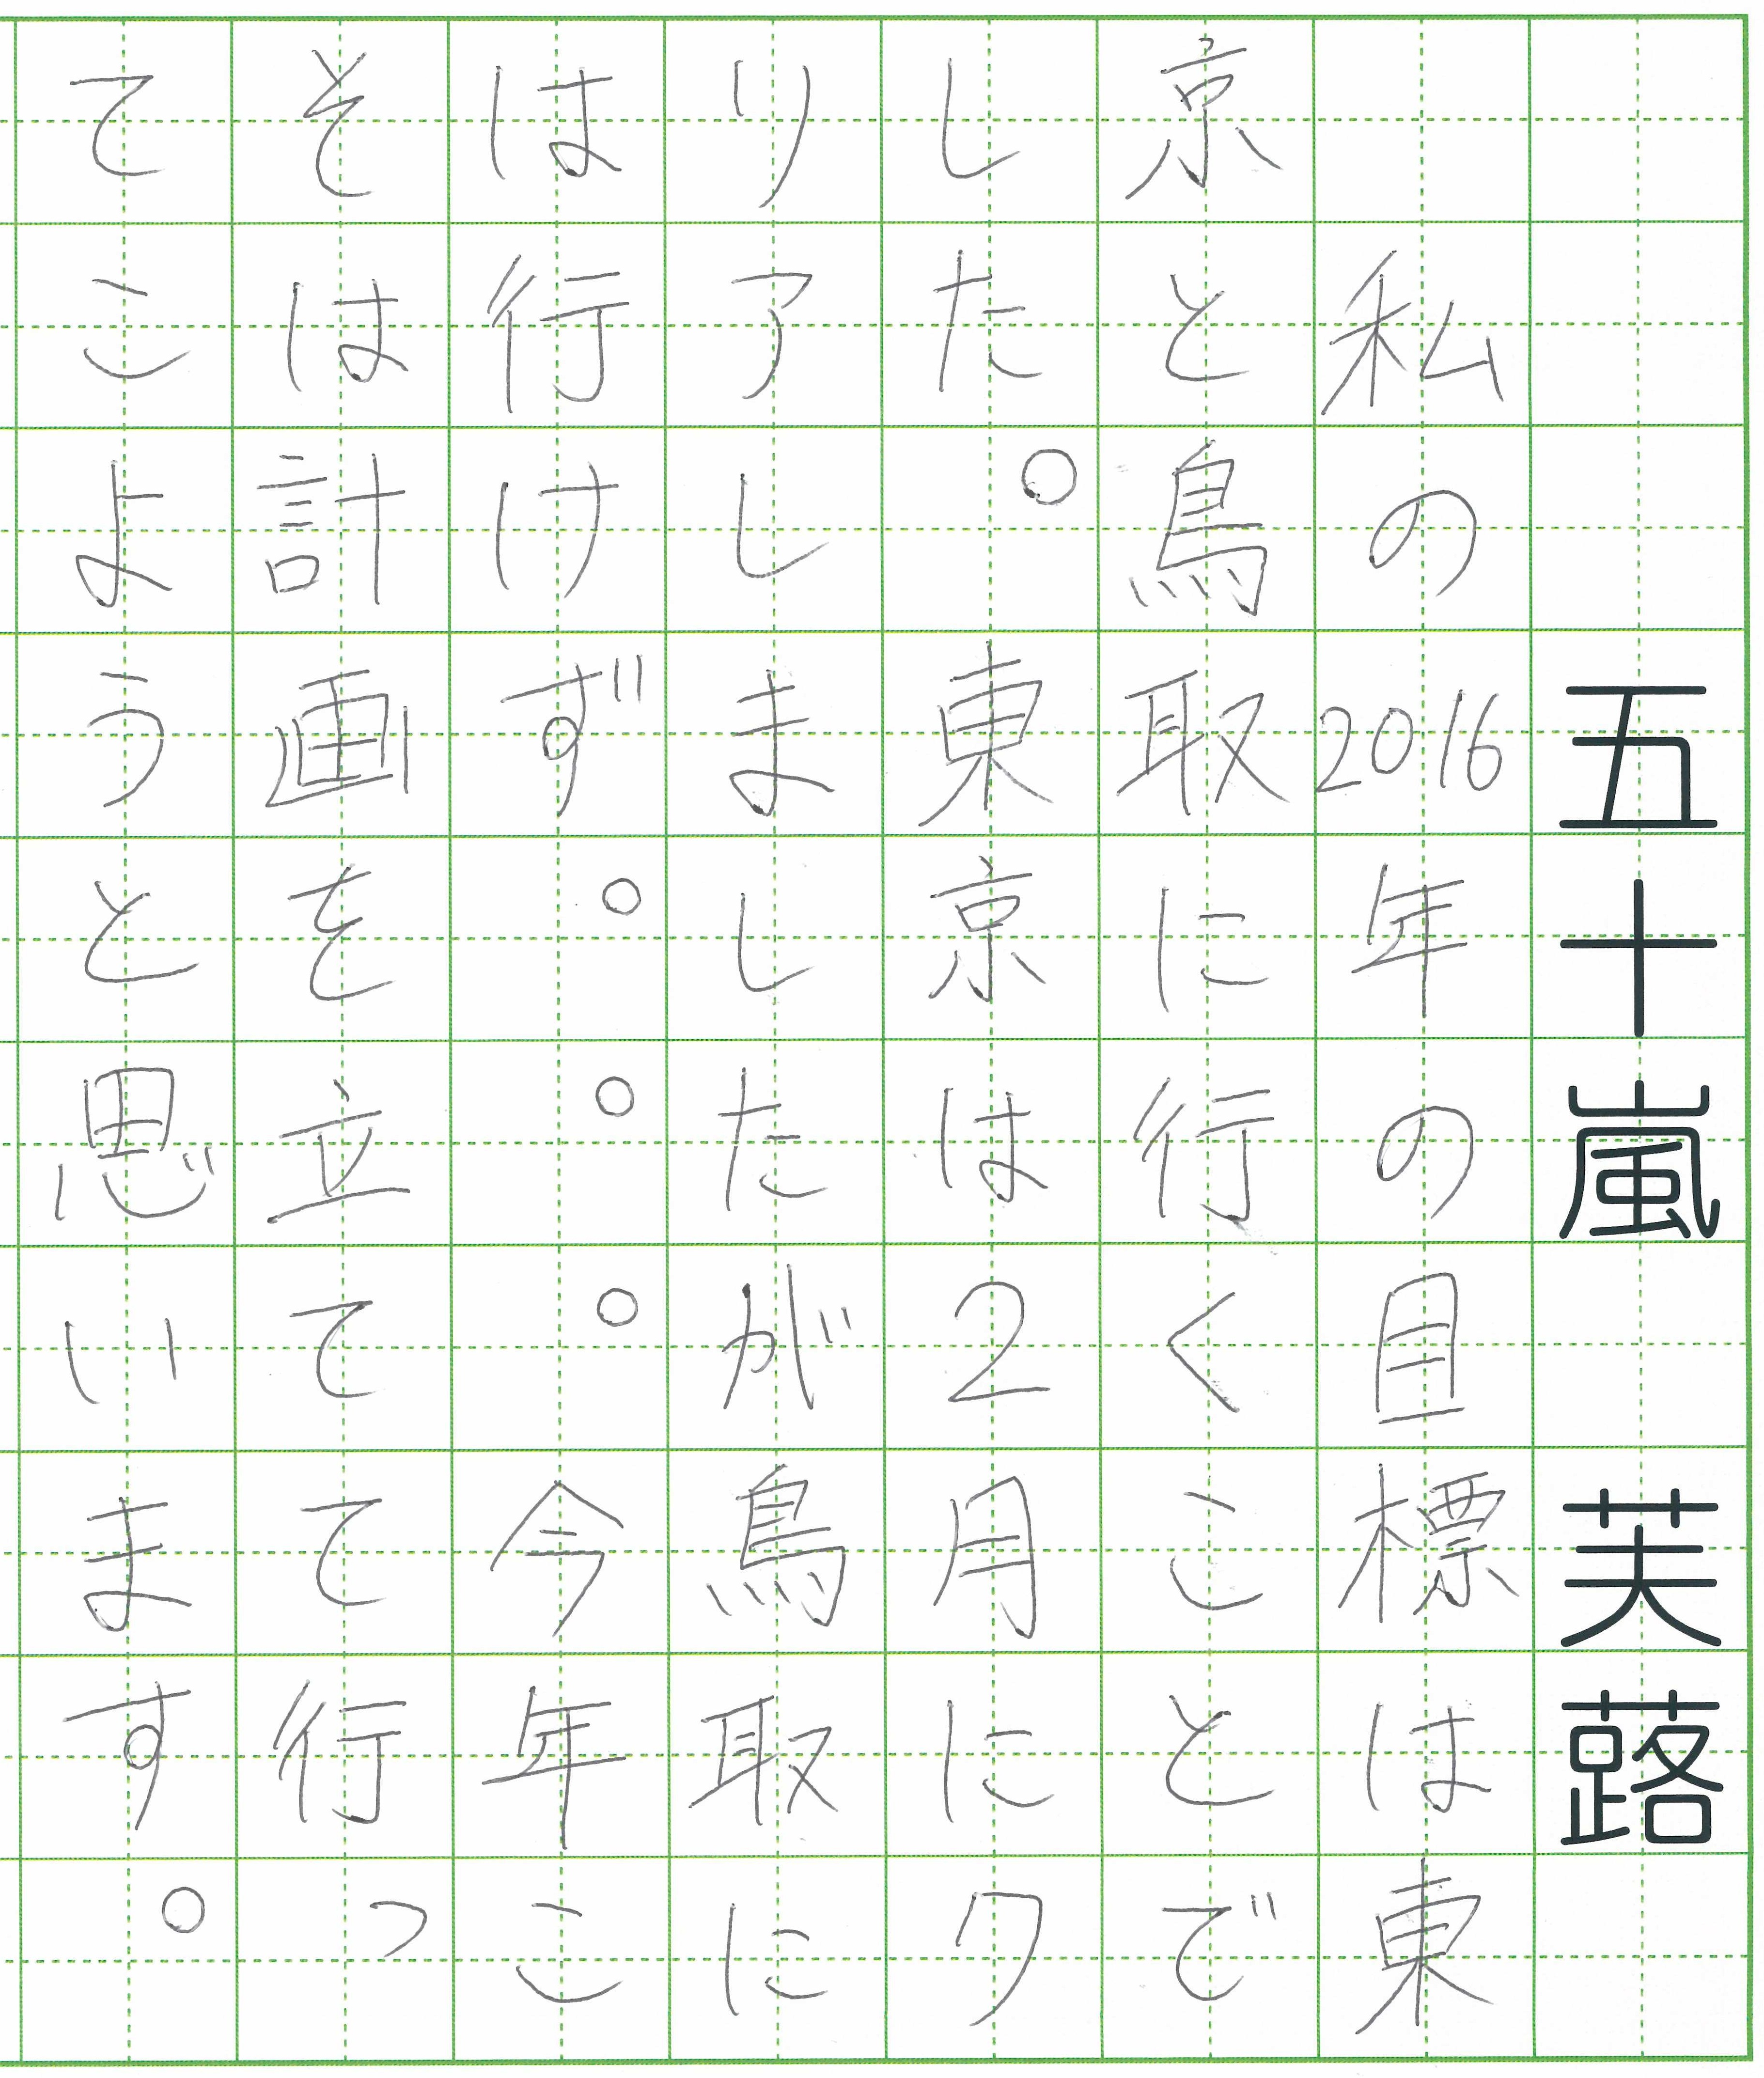 五十嵐 芙蕗
私の2016年の目標は東
京と鳥取に行くことで
した。東京は2月にク
リアしましたが鳥取に
は行けず。。。今年こ
そは計画を立てて行っ
てこようと思います。